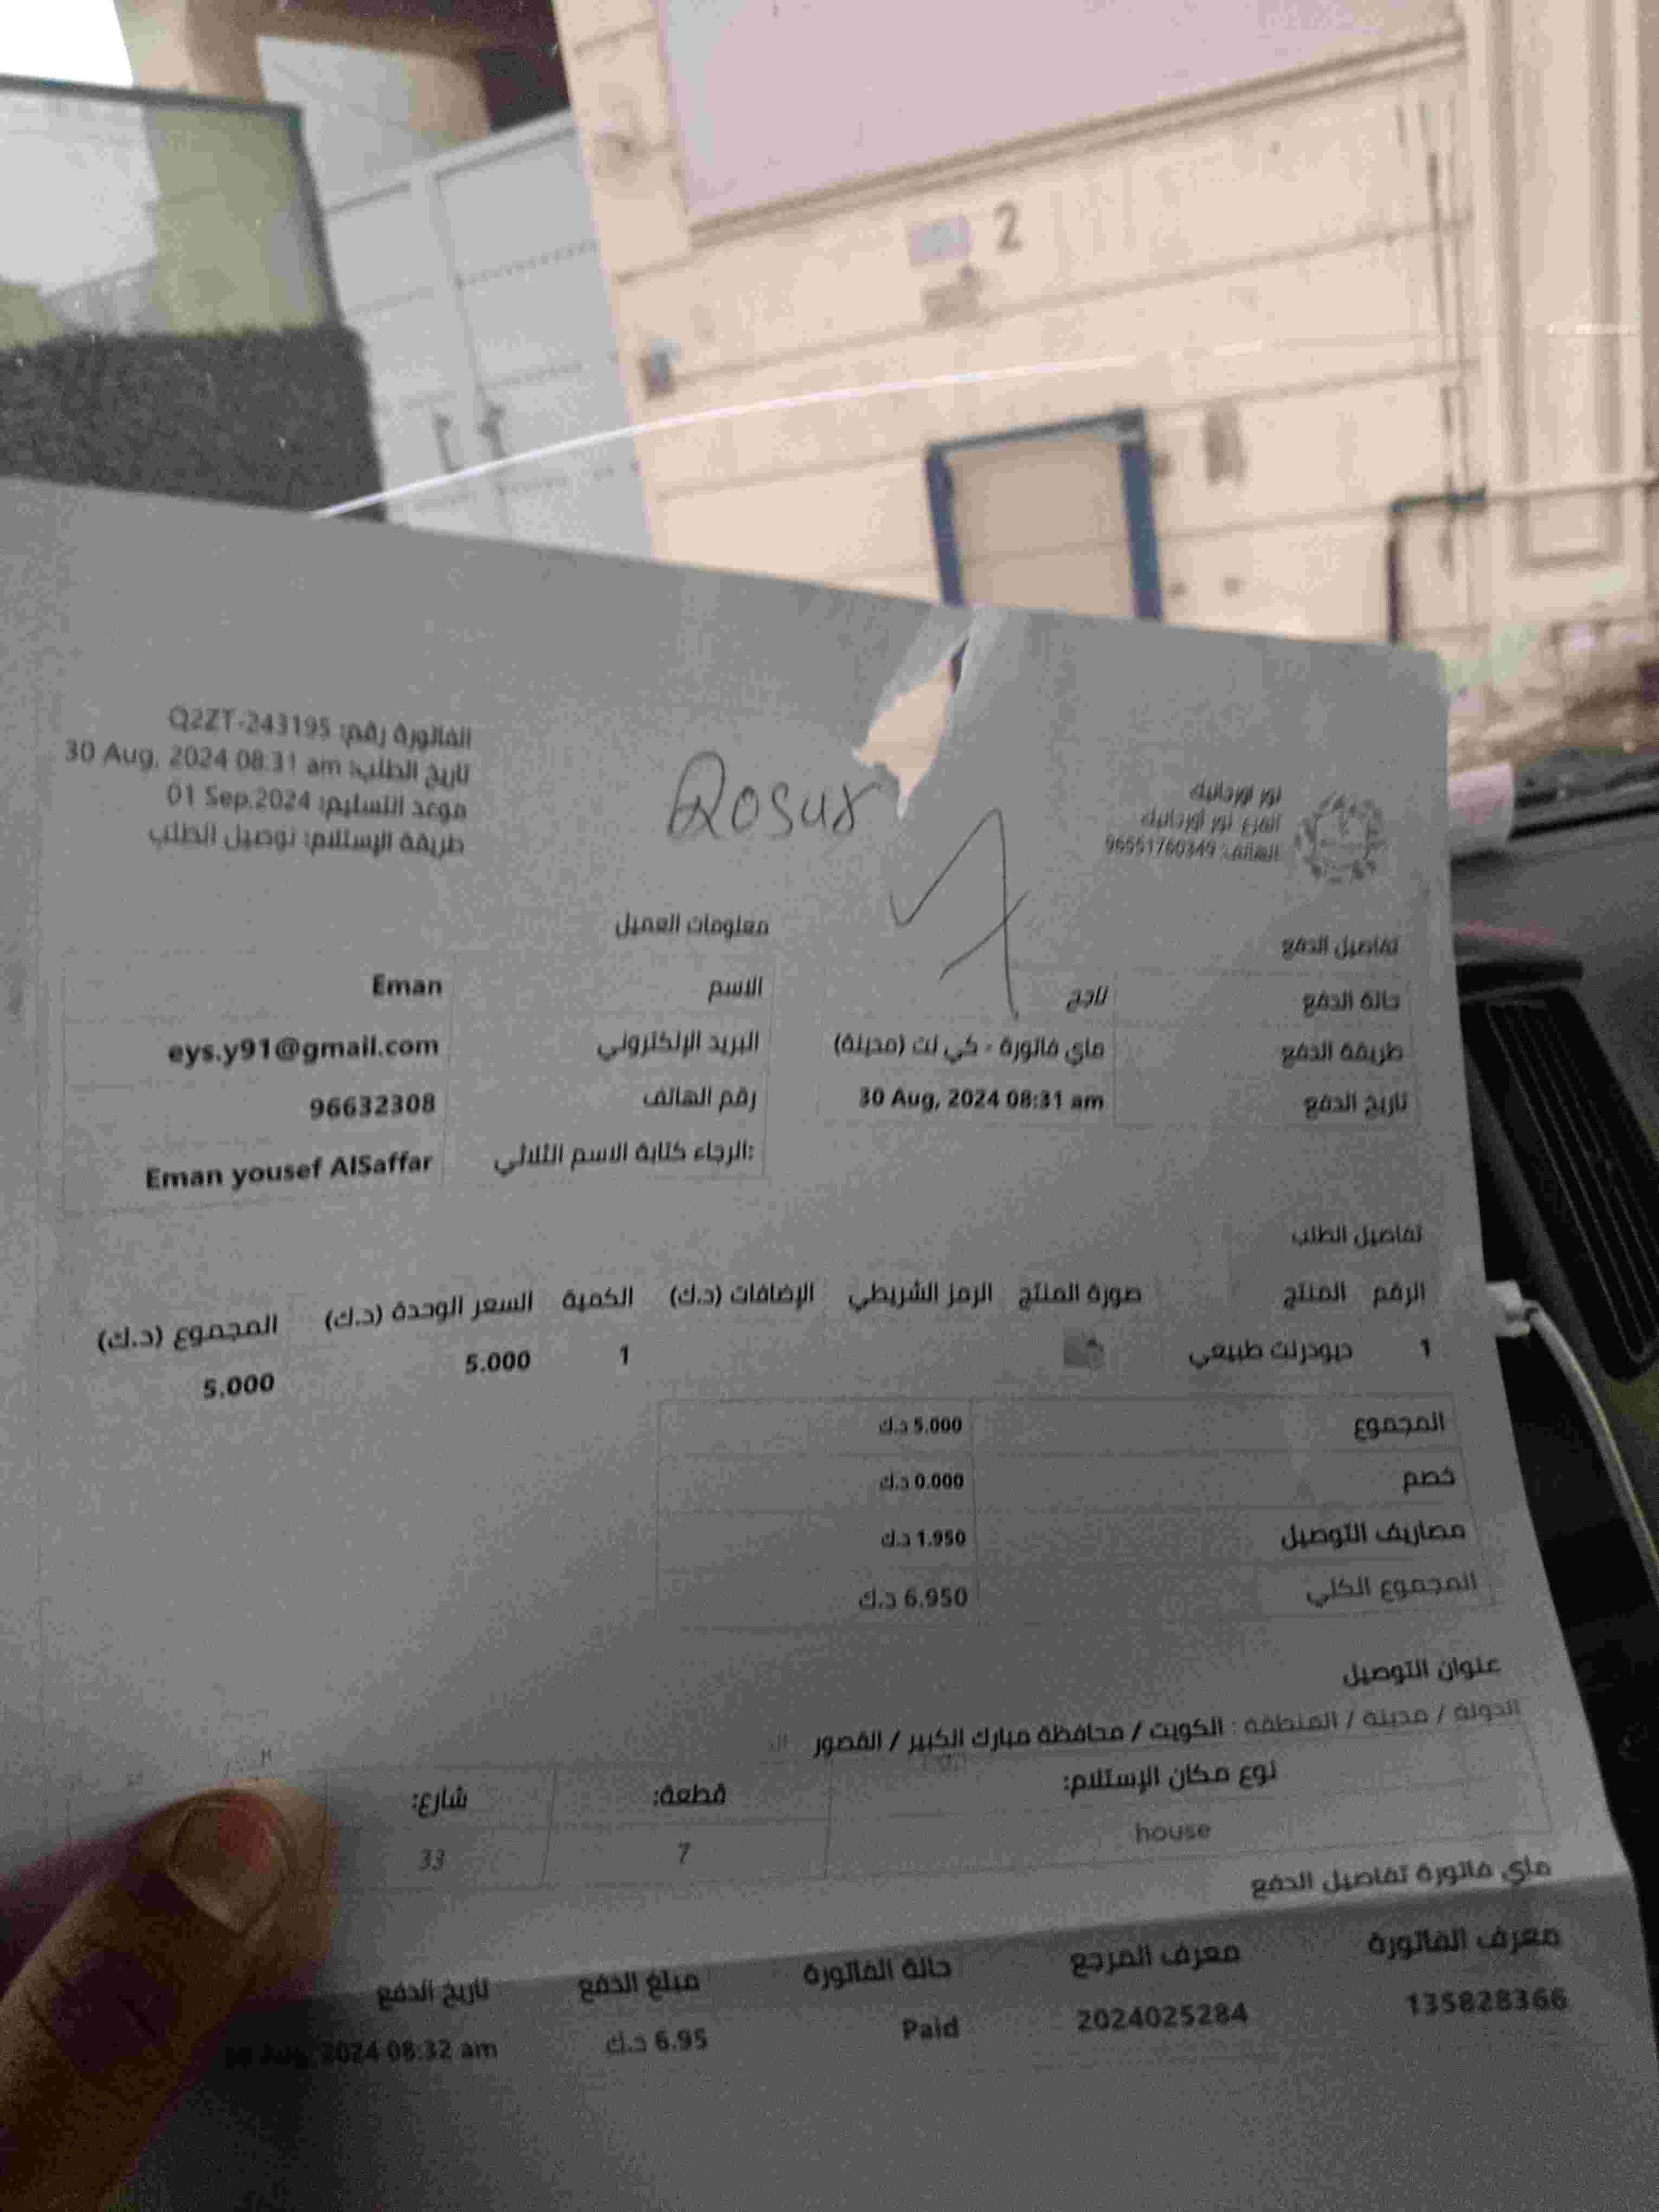 2
نور اورجانيك
الفرع: نور اورجانيك
الهاتف: 96551760349
Qosur
الفاتورة رقم: Q2ZT-243195
تاريخ الطلب: 30 Aug, 2024 08:31 am
موعد التسليم: 01 Sep,2024
طريقة الإستلام: توصيل الطلب
تفاصيل الدفع
حالة الدفع ناجح
طريقة الدفع ماي فاتورة - كي نت (مدينة)
تاريخ الدفع 30 Aug, 2024 08:31 am
معلومات العميل
الاسم Eman
البريد الإلكتروني eys.y91@gmail.com
رقم الهاتف 96632308
الرجاء كتابة الاسم الثلاثي: Eman yousef AlSaffar
تفاصيل الطلب
الرقم المنتج صورة المنتج الرمز الشريطي الإضافات (د.ك) الكمية السعر الوحدة (د.ك) المجموع (د.ك)
1 ديودرنت طبيعي 1 5.000 5.000
المجموع 5.000 د.ك
خصم 0.000 د.ك
مصاريف التوصيل 1.950 د.ك
المجموع الكلي 6.950 د.ك
عنوان التوصيل
الدولة / مدينة / المنطقة : الكويت / محافظة مبارك الكبير / القصور
نوع مكان الإستلام: قطعة: شارع:
house 7 33
ماي فاتورة تفاصيل الدفع
معرف الفاتورة معرف المرجع حالة الفاتورة مبلغ الدفع تاريخ الدفع
135828366 2024025284 Paid 6.95 د.ك 2024 08:32 am